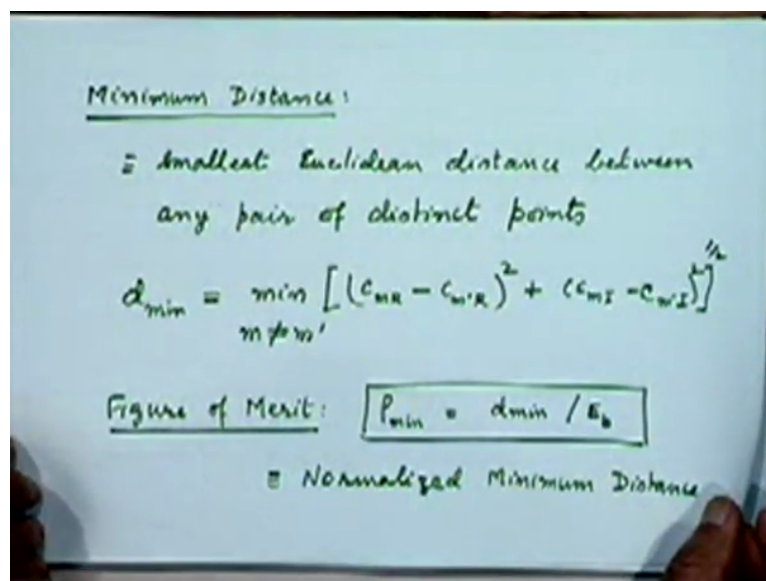 Minimum Distance:
≡ Smallest Euclidean distance between
any pair of distinct points
d_min = min [(C_mR - C_m'R)^2 + (C_mI - C_m'I)^2]^1/2
m≠m'
Figure of Merit: ρ_min = dmin / E_b
≡ Normalized Minimum Distance